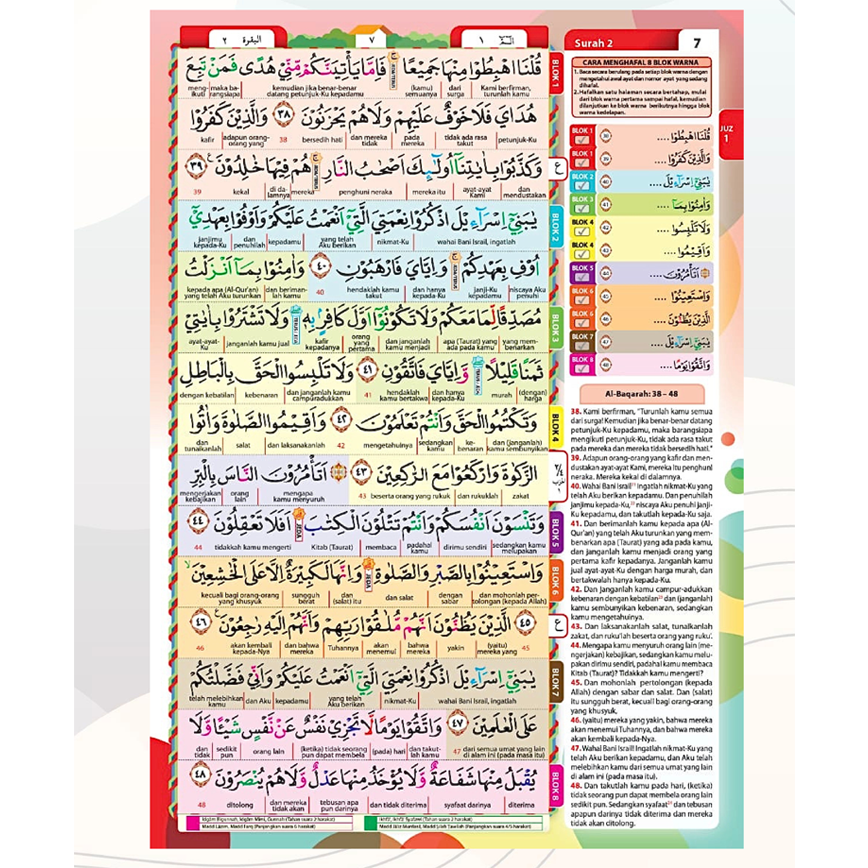 البقرة ٢
٧
١
Surah 2
7
JUZ 1
CARA MENGHAFAL 8 BLOK WARNA
1. Baca secara berulang pada setiap blok warna dengan
mengetahui awal ayat dan nomor ayat yang sedang
dihafal.
2. Hafalkan satu halaman secara bertahap, mulai
dari blok warna pertama sampai hafal, kemudian
dilanjutkan ke blok warna berikutnya hingga blok
warna kedelapan.
BLOK 1
قُلْنَا اهْبِطُوْا مِنْهَا جَمِيْعًا ۚ فَاِمَّا يَأْتِيَنَّكُمْ مِّنِّيْ هُدًى فَمَنْ تَبِعَ
Kami berfirman, turunlah kamu
dari surga
(kamu) semuanya
kemudian jika benar-benar datang petunjuk-Ku kepadamu
maka ba-rangsiapa
meng-ikuti
هُدَايَ فَلَا خَوْفٌ عَلَيْهِمْ وَلَا هُمْ يَحْزَنُوْنَ ٣٨ وَالَّذِيْنَ كَفَرُوْا
petunjuk-Ku
tidak ada rasa takut
pada mereka
dan mereka tidak
bersedih hati
38
adapun orang-orang yang
kafir
وَكَذَّبُوْا بِاٰيٰتِنَآ اُولٰۤىِٕكَ اَصْحٰبُ النَّارِ ۚ هُمْ فِيْهَا خٰلِدُوْنَ ٣٩
dan mendustakan
ayat-ayat Kami
mereka itu
penghuni neraka
mereka
di da-lamnya
kekal
39
BLOK 2
يٰبَنِيْٓ اِسْرَاۤءِيْلَ اذْكُرُوْا نِعْمَتِيَ الَّتِيْٓ اَنْعَمْتُ عَلَيْكُمْ وَاَوْفُوْا بِعَهْدِيْٓ
wahai Bani Israil, ingatlah
nikmat-Ku
yang telah Aku berikan
kepadamu
dan penuhilah
janjimu kepada-Ku
اُوْفِ بِعَهْدِكُمْ ۚ وَاِيَّايَ فَارْهَبُوْنِ ٤٠ وَاٰمِنُوْا بِمَآ اَنْزَلْتُ
niscaya Aku penuhi
janji-Ku kepadamu
dan hanya kepada-Ku
hendaklah kamu takut
40
dan beriman-lah kamu
kepada apa (Al-Qur'an) yang telah Aku turunkan
BLOK 3
مُصَدِّقًا لِّمَا مَعَكُمْ وَلَا تَكُوْنُوْٓا اَوَّلَ كَافِرٍۢ بِهٖ ۖ وَلَا تَشْتَرُوْا بِاٰيٰتِيْ
yang mem-benarkan
apa (Taurat) yang ada pada kamu
dan janganlah kamu menjadi
orang yang pertama
kafir kepadanya
janganlah kamu jual
ayat-ayat-Ku
ثَمَنًا قَلِيْلًا ۖ وَّاِيَّايَ فَاتَّقُوْنِ ٤١ وَلَا تَلْبِسُوا الْحَقَّ بِالْبَاطِلِ
(dengan) harga
murah
dan hanya kepada-Ku
hendaklah kamu bertakwa
41
dan janganlah kamu campuradukkan
kebenaran
dengan kebatilan
BLOK 4
وَتَكْتُمُوا الْحَقَّ وَاَنْتُمْ تَعْلَمُوْنَ ٤٢ وَاَقِيْمُوا الصَّلٰوةَ وَاٰتُوا
dan (janganlah) kamu sembunyikan
ke-benaran
sedangkan kamu
mengetahuinya
42
dan laksanakanlah
salat
dan tunaikanlah
الزَّكٰوةَ وَارْكَعُوْا مَعَ الرّٰكِعِيْنَ ٤٣ اَتَأْمُرُوْنَ النَّاسَ بِالْبِرِّ
zakat
dan rukuklah
beserta orang yang rukuk
43
mengapa kamu menyuruh
orang lain
mengerjakan kebajikan
BLOK 5
وَتَنْسَوْنَ اَنْفُسَكُمْ وَاَنْتُمْ تَتْلُوْنَ الْكِتٰبَ ۗ اَفَلَا تَعْقِلُوْنَ ٤٤
sedangkan kamu melupakan
dirimu sendiri
padahal kamu
membaca
Kitab (Taurat)
tidakkah kamu mengerti
44
BLOK 6
وَاسْتَعِيْنُوْا بِالصَّبْرِ وَالصَّلٰوةِ ۗ وَاِنَّهَا لَكَبِيْرَةٌ اِلَّا عَلَى الْخٰشِعِيْنَ
dan mohonlah per-tolongan (kepada Allah)
dengan sabar
dan salat
dan (salat) itu
sungguh berat
kecuali bagi orang-orang yang khusyuk
الَّذِيْنَ يَظُنُّوْنَ اَنَّهُمْ مُّلٰقُوْا رَبِّهِمْ وَاَنَّهُمْ اِلَيْهِ رٰجِعُوْنَ ٤٦
45
(yaitu) mereka yang
yakin
bahwa mereka
akan menemui
Tuhannya
dan bahwa mereka
akan kembali kepada-Nya
46
BLOK 7
يٰبَنِيْٓ اِسْرَاۤءِيْلَ اذْكُرُوْا نِعْمَتِيَ الَّتِيْٓ اَنْعَمْتُ عَلَيْكُمْ وَاَنِّيْ فَضَّلْتُكُمْ
wahai Bani Israil, ingatlah
nikmat-Ku
yang telah Aku berikan
kepadamu
dan Aku
telah melebihkan kamu
عَلَى الْعٰلَمِيْنَ ٤٧ وَاتَّقُوْا يَوْمًا لَّا تَجْزِيْ نَفْسٌ عَنْ نَّفْسٍ شَيْـًٔا وَّلَا
dari semua umat yang lain di alam ini (pada masa itu)
47
dan takut-lah kamu
(pada) hari
(ketika) tidak seorang pun dapat membela
orang lain
sedikit pun
dan tidak
BLOK 8
يُقْبَلُ مِنْهَا شَفَاعَةٌ وَّلَا يُؤْخَذُ مِنْهَا عَدْلٌ وَّلَا هُمْ يُنْصَرُوْنَ ٤٨
diterima
syafaat darinya
dan tidak diterima
tebusan apa pun darinya
dan mereka tidak akan
ditolong
48
BLOK 1 38 قُلْنَا اهْبِطُوْا ....
BLOK 1 39 وَالَّذِيْنَ كَفَرُوْا ....
BLOK 2 40 يٰبَنِيْٓ اِسْرَاۤءِيْلَ ....
BLOK 3 41 وَاٰمِنُوْا بِمَآ ....
BLOK 4 42 وَلَا تَلْبِسُوا ....
BLOK 4 43 وَاَقِيْمُوا ....
BLOK 5 44 اَتَأْمُرُوْنَ ....
BLOK 6 45 وَاسْتَعِيْنُوْا ....
BLOK 6 46 الَّذِيْنَ يَظُنُّوْنَ ....
BLOK 7 47 يٰبَنِيْٓ اِسْرَاۤءِيْلَ ....
BLOK 8 48 وَاتَّقُوْا يَوْمًا ....
Al-Baqarah: 38 – 48
38. Kami berfirman, "Turunlah kamu semua
dari surga! Kemudian jika benar-benar datang
petunjuk-Ku kepadamu, maka barangsiapa
mengikuti petunjuk-Ku, tidak ada rasa takut
pada mereka dan mereka tidak bersedih hati."
39. Adapun orang-orang yang kafir dan men-
dustakan ayat-ayat Kami, mereka itu penghuni
neraka. Mereka kekal di dalamnya.
40. Wahai Bani Israil! Ingatlah nikmat-Ku yang
telah Aku berikan kepadamu. Dan penuhilah
janjimu kepada-Ku, niscaya Aku penuhi janji-
Ku kepadamu, dan takutlah kepada-Ku saja.
41. Dan berimanlah kamu kepada apa (Al-
Qur'an) yang telah Aku turunkan yang mem-
benarkan apa (Taurat) yang ada pada kamu,
dan janganlah kamu menjadi orang yang
pertama kafir kepadanya. Janganlah kamu
jual ayat-ayat-Ku dengan harga murah, dan
bertakwalah hanya kepada-Ku.
42. Dan janganlah kamu campur-adukkan
kebenaran dengan kebatilan dan (janganlah)
kamu sembunyikan kebenaran, sedangkan kamu
mengetahuinya.
43. Dan laksanakanlah salat, tunaikanlah
zakat, dan ruku'lah beserta orang yang ruku'.
44. Mengapa kamu menyuruh orang lain (me-
ngerjakan) kebajikan, sedangkan kamu melu-
pakan dirimu sendiri, padahal kamu membaca
Kitab (Taurat)? Tidakkah kamu mengerti?
45. Dan mohonlah pertolongan (kepada
Allah) dengan sabar dan salat. Dan (salat)
itu sungguh berat, kecuali bagi orang-orang
yang khusyuk,
46. (yaitu) mereka yang yakin, bahwa mereka
akan menemui Tuhannya, dan bahwa mereka
akan kembali kepada-Nya.
47. Wahai Bani Israil! Ingatlah nikmat-Ku yang
telah Aku berikan kepadamu, dan Aku telah
melebihkan kamu dari semua umat yang lain
di alam ini (pada masa itu).
48. Dan takutlah kamu pada hari, (ketika)
tidak seorang pun dapat membela orang lain
sedikit pun. Sedangkan syafaat dan tebusan
apapun darinya tidak diterima dan mereka
tidak akan ditolong.